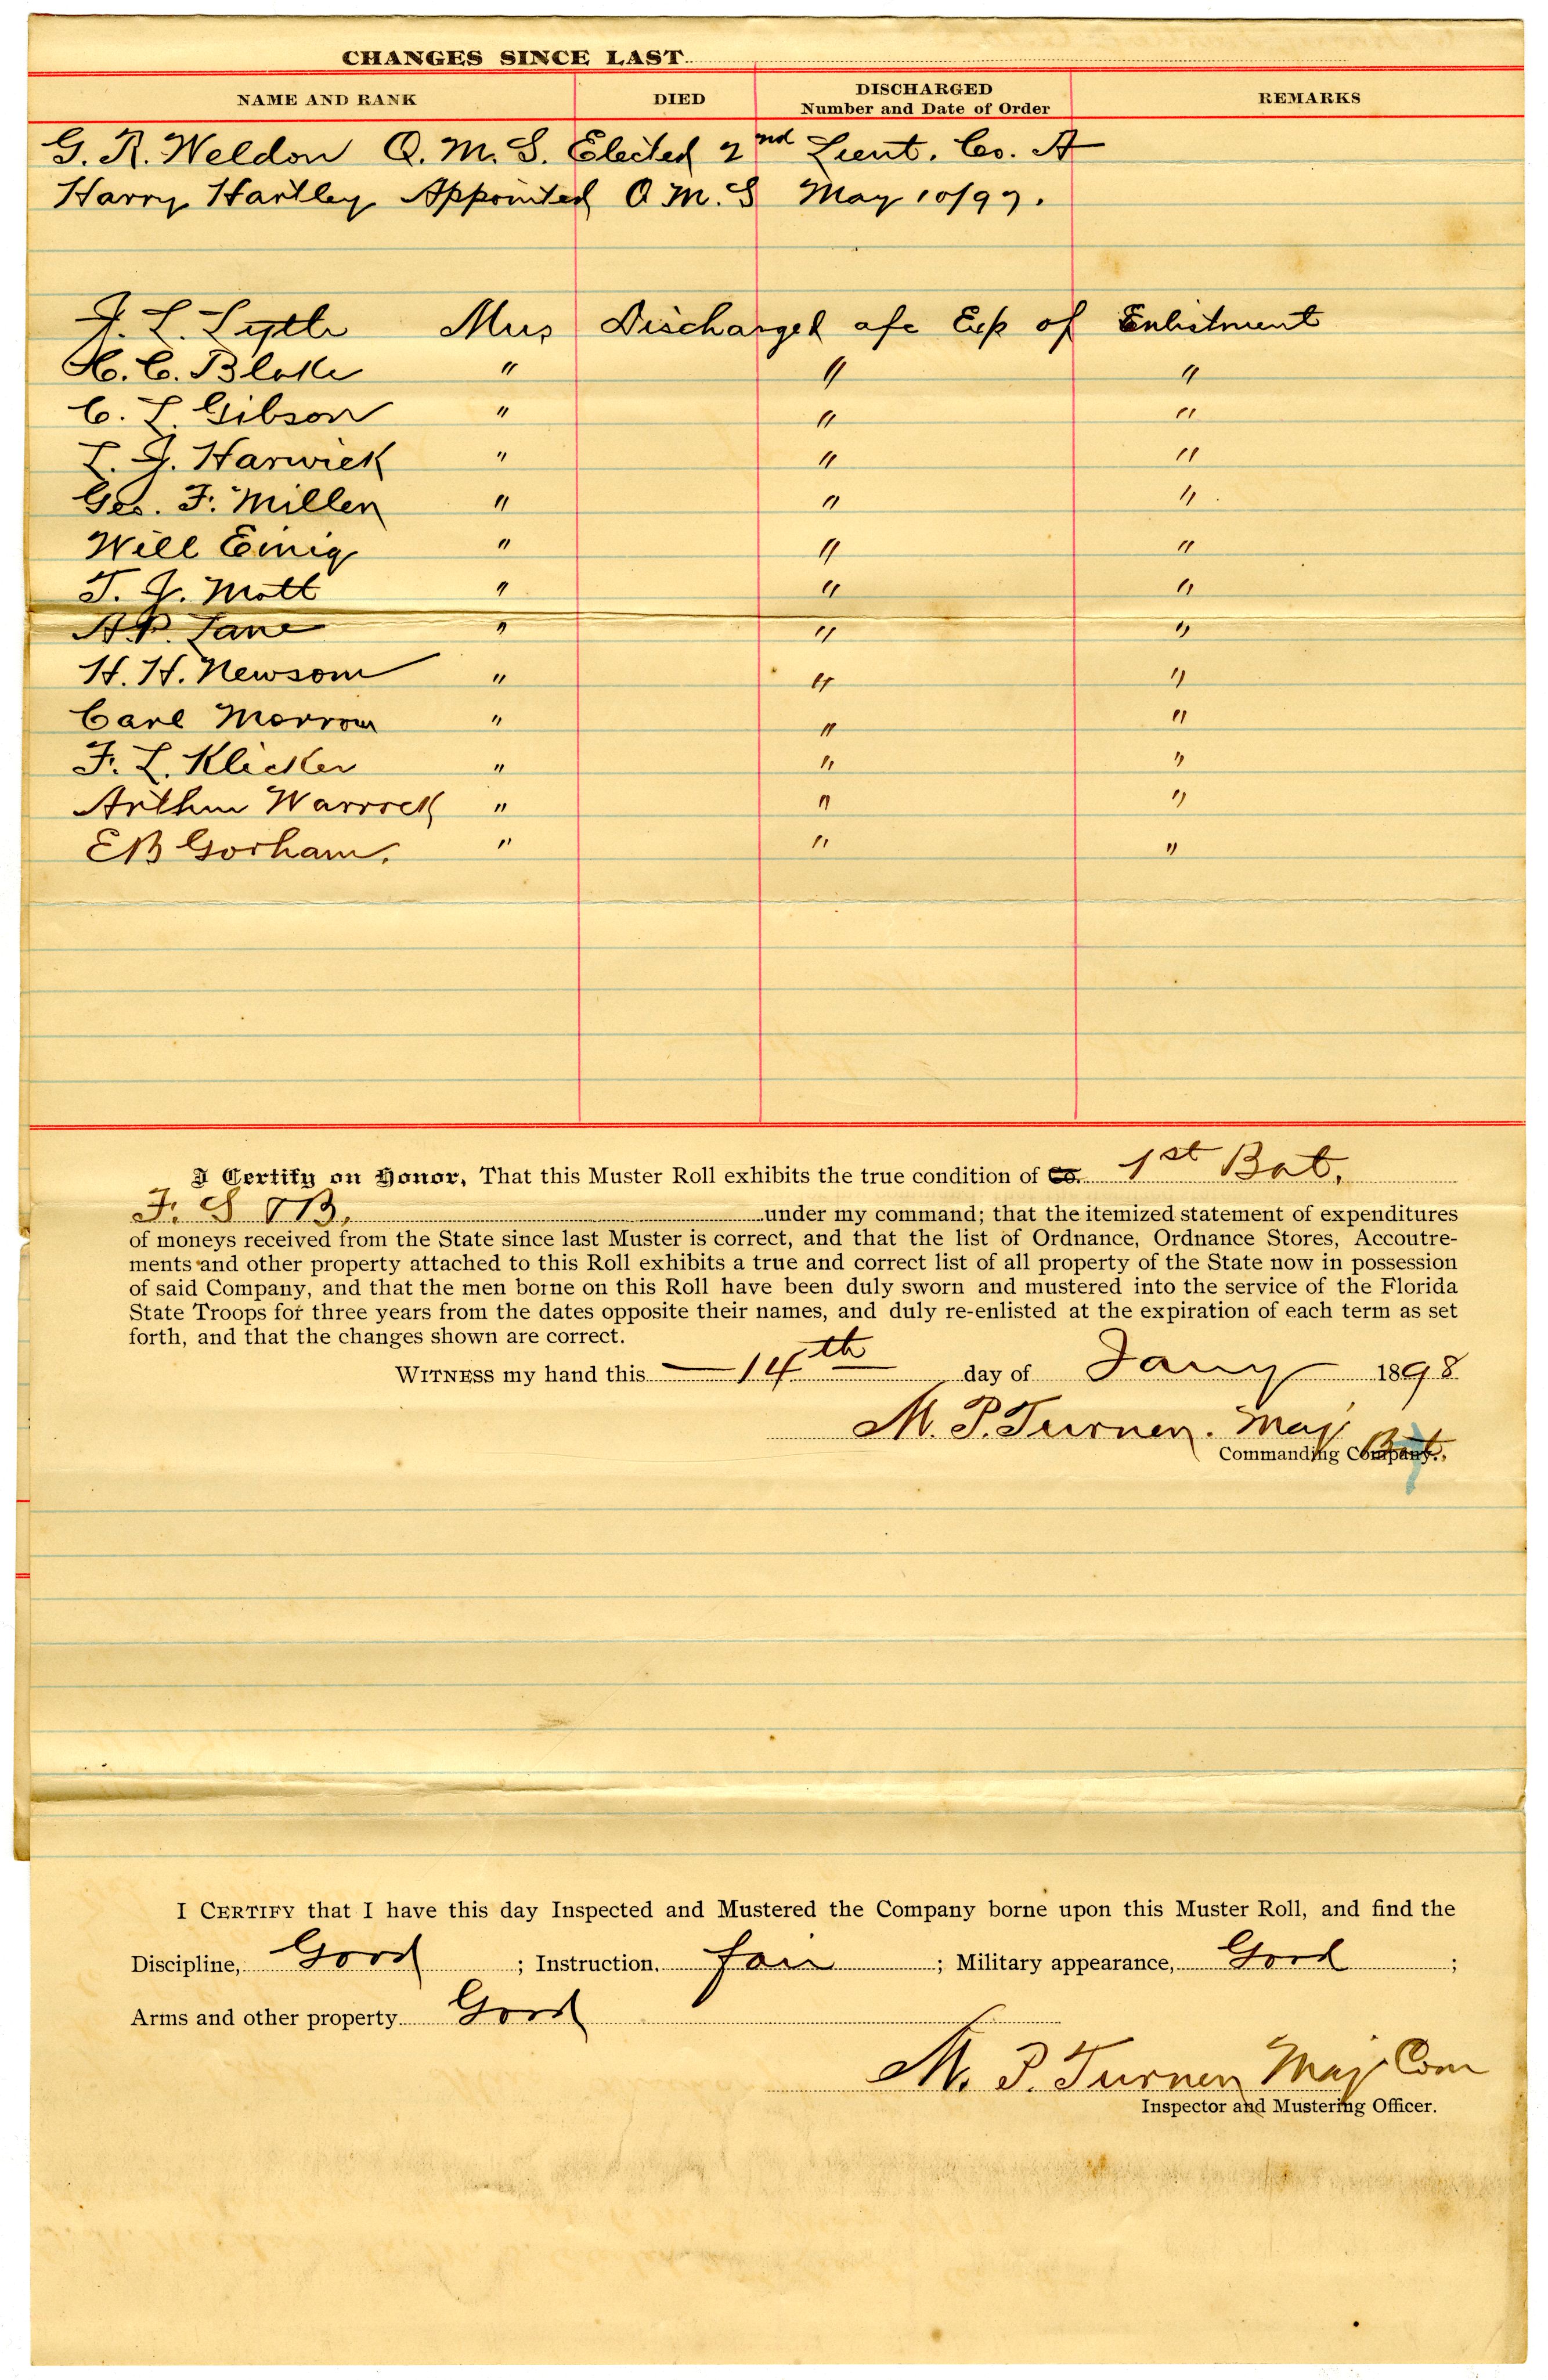 CHANGES SINCE LAST
NAME AND RANK DIED DISCHARGED Number and Date of Order REMARKS
G. R. Weldon Q. M. S. Elected 2nd Lieut. Co. A
Harry Hartley Appointed Q M. S May 10/97.
J. L. Lytle Mus Discharged afc Exp of Enlistment
H. C. Blake " " "
C. L. Gibson " " "
L. J. Harwick " " "
Geo. F. Miller " " "
Will Einig " " "
T. J. Mott " " "
A.P. Lane " " "
H. H. Newsom " " "
Carl Morrow " " "
F. L. Klicker " " "
Arthur Warrock " " "
E B Gorham. " " "
I Certify on Honor, That this Muster Roll exhibits the true condition of Co. 1st Bat.
F. S T B, under my command; that the itemized statement of expenditures
of moneys received from the State since last Muster is correct, and that the list of Ordnance, Ordnance Stores, Accoutre-
ments and other property attached to this Roll exhibits a true and correct list of all property of the State now in possession
of said Company, and that the men borne on this Roll have been duly sworn and mustered into the service of the Florida
State Troops for three years from the dates opposite their names, and duly re-enlisted at the expiration of each term as set
forth, and that the changes shown are correct.
WITNESS my hand this 14th day of Jany 1898
M. P. Turner. Maj
Commanding Company. Bat.
I CERTIFY that I have this day Inspected and Mustered the Company borne upon this Muster Roll, and find the
Discipline, Good ; Instruction, fair ; Military appearance, Good ;
Arms and other property Good
M. P. Turner Maj Com
Inspector and Mustering Officer.